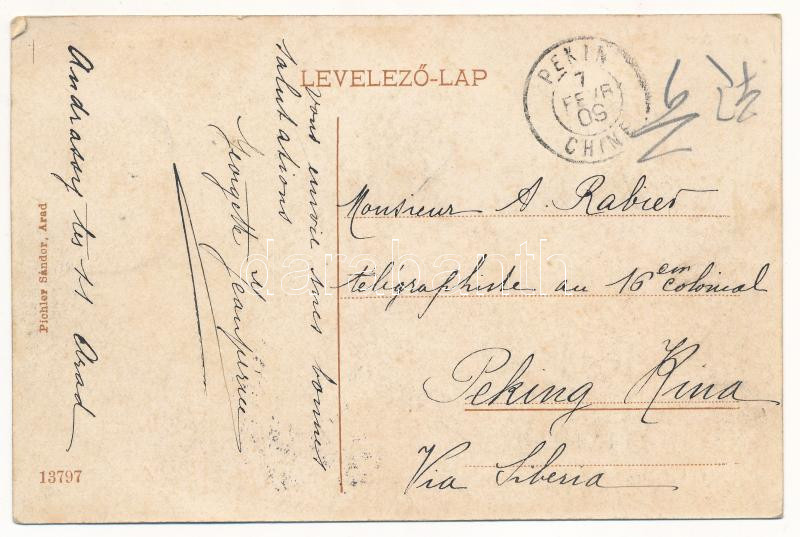 LEVELEZŐ-LAP
PÉKIN
7
FEVR
09
CHINE
Monsieur A. Rabier
télégraphiste au 16em colonial
Peking Kina
Via Siberia
vous envoie ses bonnes
salutations
Georgette
Andrassy tér 11 Arad
Pichler Sándor, Arad
13797
darabanth